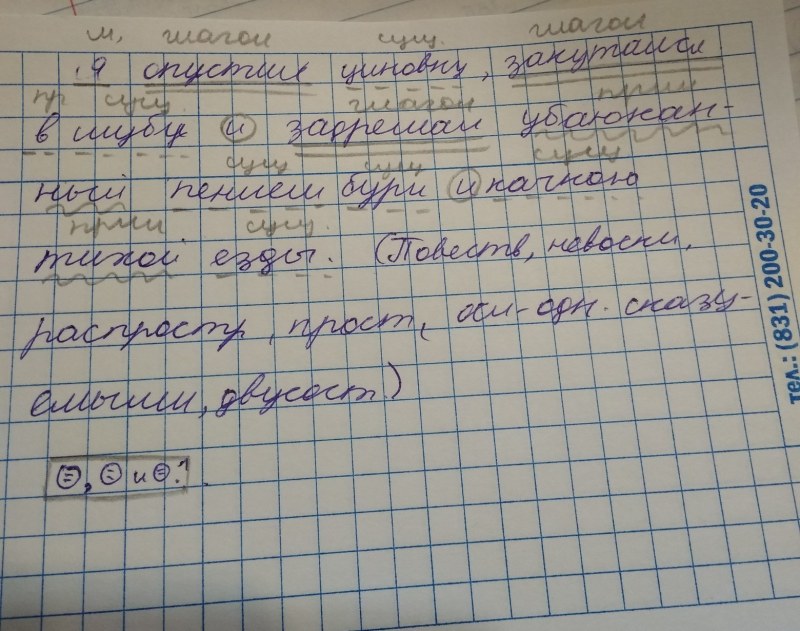 м, глагол сущ. глагол
Я опустил циновку, закутался
пр сущ. глагол прил
в шубу и задремал убаюкан-
сущ сущ сущ
ный пением бури и качкою
прил сущ.
тихой езды. (Повеств, невоскл,
распростр, прост, осл-одн. сказу-
емыми, двусост)
, и .
тел.: (831) 200-30-20